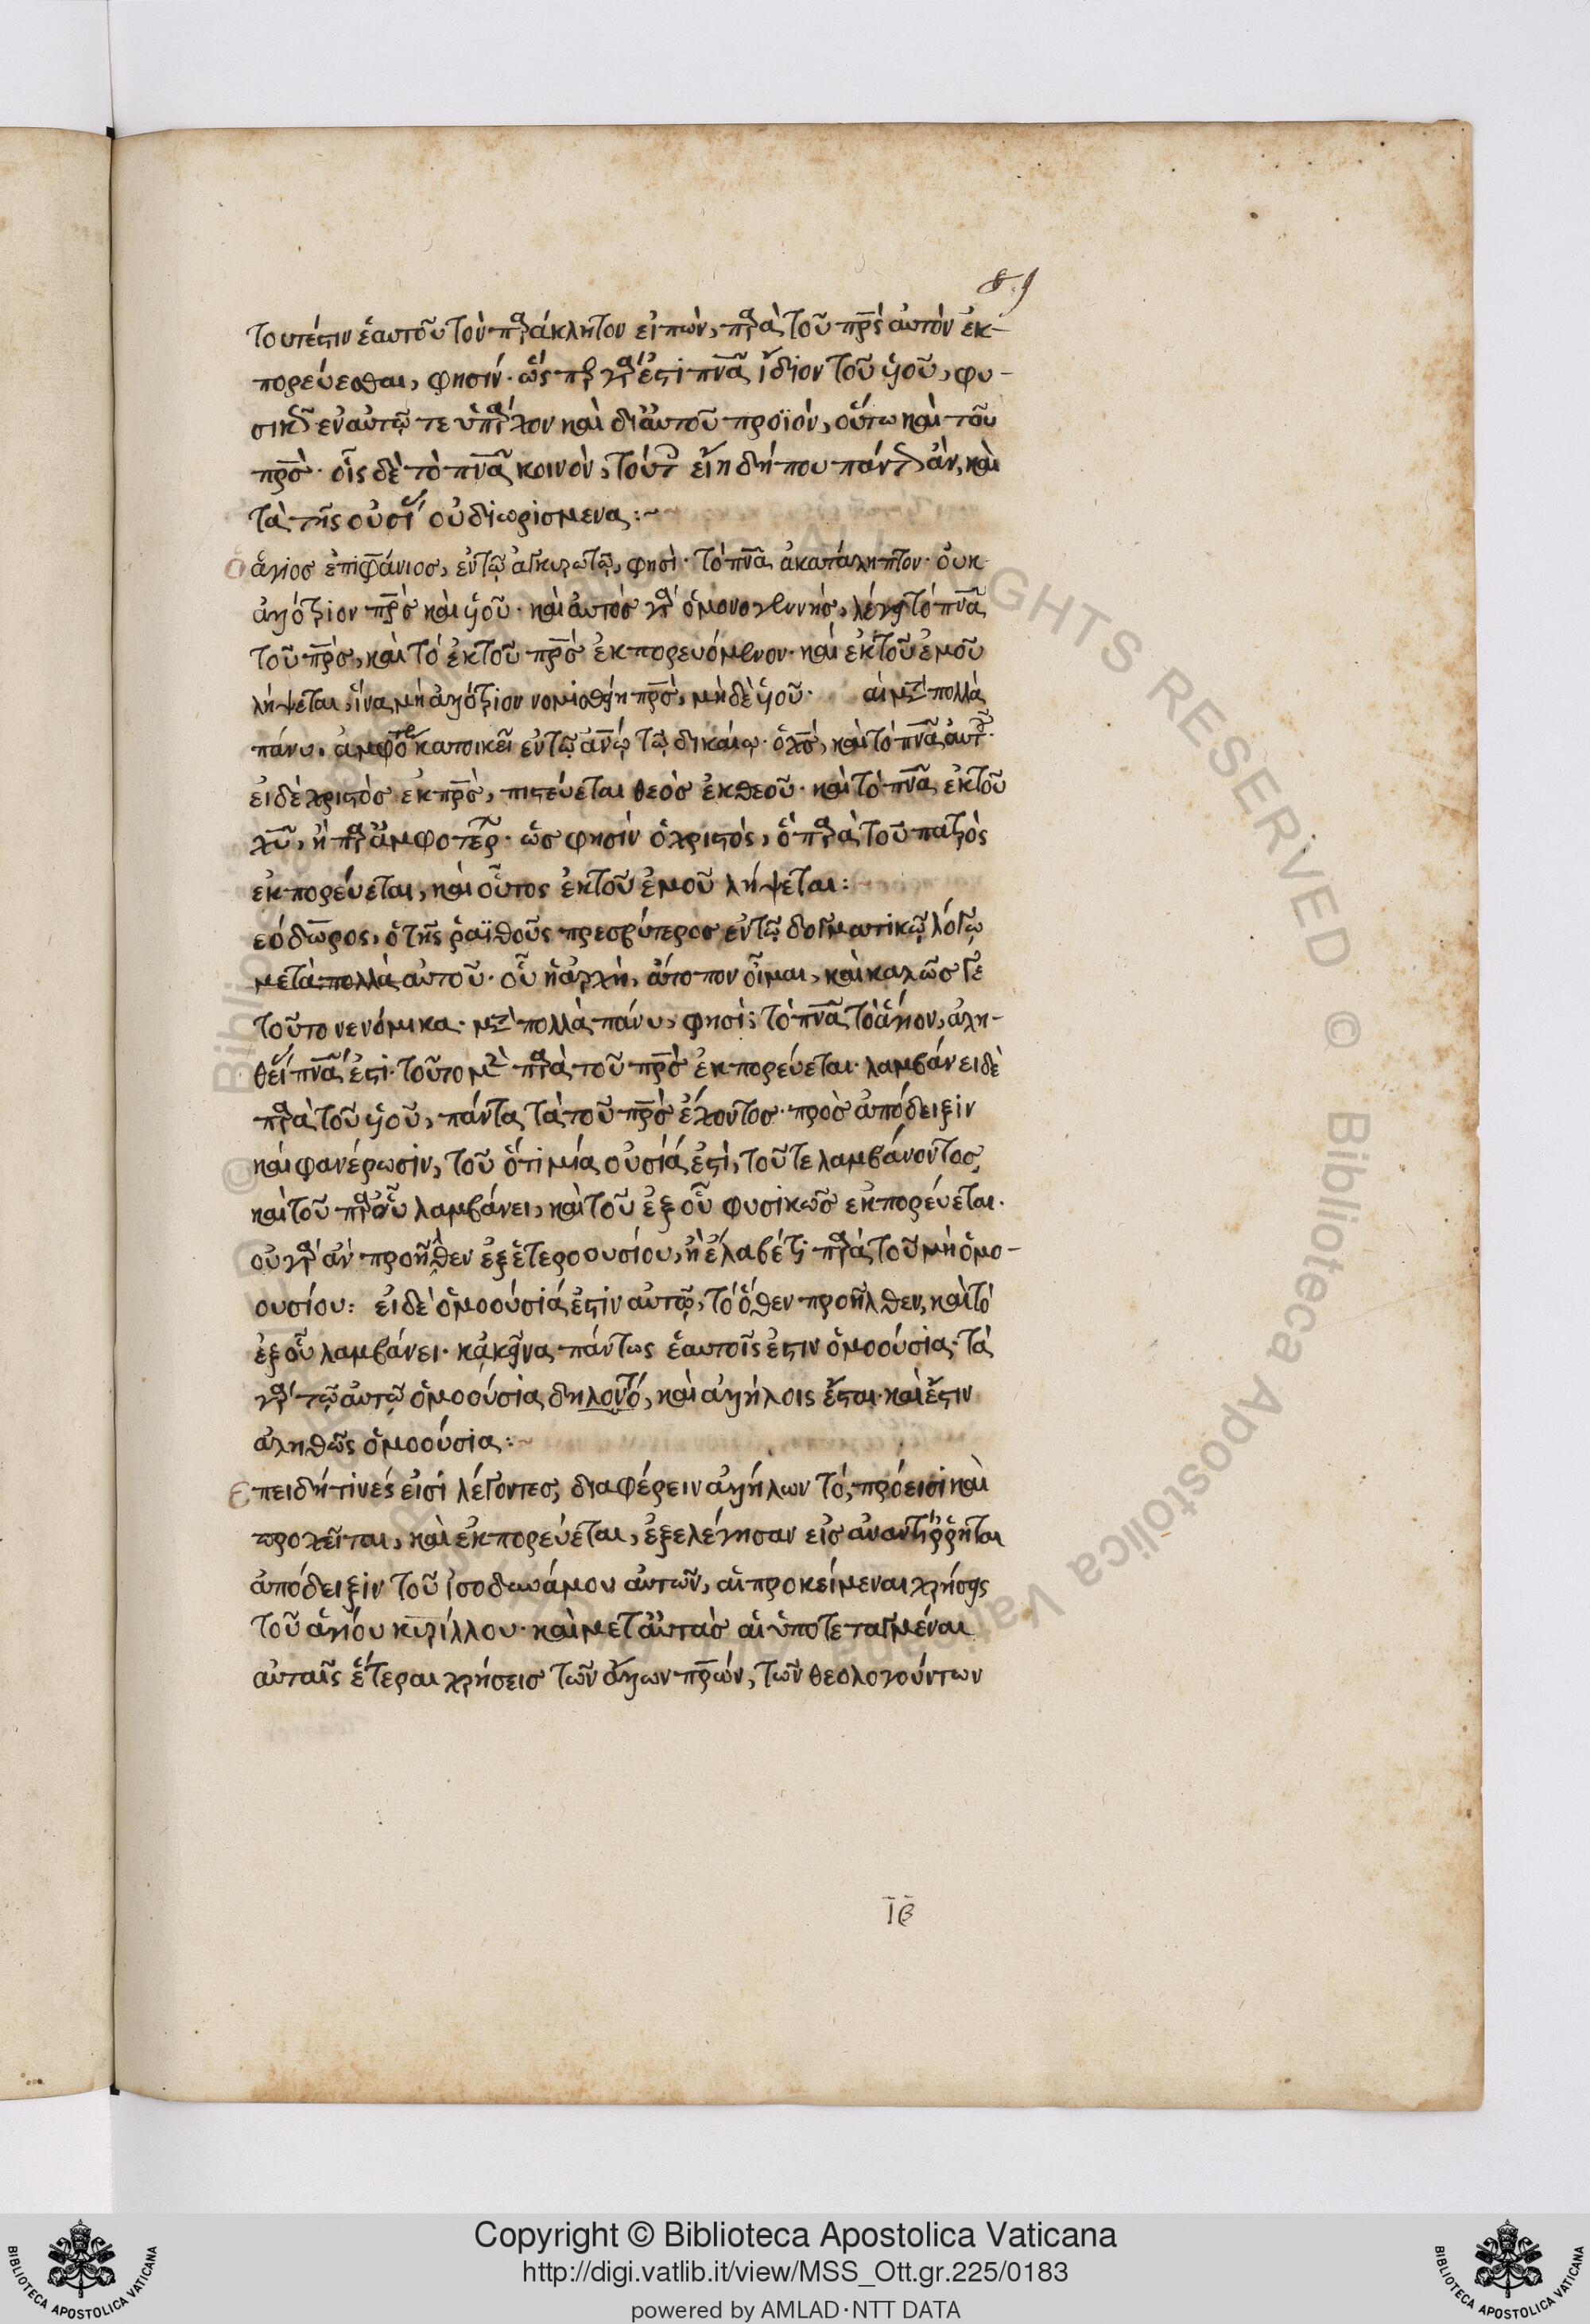 89
τουτέστιν ἑαυτοῦ τὸν πράκλητον εἰπὼν, πρὰ τοῦ πρς αὐτὸν ἐκ-
πορεύεσθαι, φησίν. ὥσπερ γάρ ἐστι πνα ἴδιον τοῦ υἱοῦ, φυ-
σικῶς ἐν αὐτῷ τε ὑπάρχον καὶ δι' αὐτοῦ προϊὸν, οὕτω καὶ τοῦ
πρσ. οἷς δὲ τὸ πνα κοινὸν, τούτοις εἴη δήπου πάντως ἂν, καὶ
τὰ τῆς οὐσίας οὐ διωρισμενα:~
ὁ ἅγιος ἐπιφάνιος, ἐν τῷ ἀγκυρωτῷ, φησὶ. τὸ πνα ἀκατάληπτον. οὐκ
ἀλλότριον πρσ καὶ υἱοῦ. καὶ αὐτὸς γὰρ ὁ μονογεννὴς, λέγει τὸ πνα
τοῦ πρσ, καὶ τὸ ἐκ τοῦ πρσ ἐκπορευόμενον. καὶ ἐκ τοῦ ἐμοῦ
λήψεται, ἵνα μὴ ἀλλότριον νομισθείη πρσ, μὴ δὲ υἱοῦ. καὶ μετὰ πολλὰ
πάνυ. κατοικεῖ ἐν τῷ ἀνῳ τῷ δικαίῳ. ὁ χσ, καὶ τὸ πνα αὐτοῦ.
εἰ δὲ χριστὸς ἐκ πρσ, πιστεύεται θεὸς ἐκ θεοῦ. καὶ τὸ πνα ἐκ τοῦ
χυ, ἢ παρ' ἀμφοτέρων. ὥς φησὶν ὁ χριστὸς, ὃ πρὰ τοῦ πατρὸς
ἐκπορεύεται, καὶ οὗτος ἐκ τοῦ ἐμοῦ λήψεται:
εόδωρος, ὁ τῆς ῥαϊθοῦς πρεσβύτερος ἐν τῷ δογματικῷ λόγῳ
μετὰ πολλὰ αὐτοῦ. οὗ ἡ ἀρχὴ, ἄτοπον οἶμαι, καὶ καλῶς γε
τοῦτο νενόμικα. μετὰ πολλὰ πάνυ, φησὶ; τὸ πνα τὸ ἅγιον, ἀλη-
θείας πνα ἐστι. τοῦτο μὲν πρὰ τοῦ πρσ ἐκπορεύεται. λαμβάνει δὲ
πρὰ τοῦ υἱοῦ, πάντα τὰ τοῦ πρσ ἔχοντος. πρὸς ἀπόδειξιν
καὶ φανέρωσιν, τοῦ ὅτι μία οὐσία ἐστὶ, τοῦ τε λαμβάνοντος,
καὶ τοῦ παρ' οὗ λαμβάνει, καὶ τοῦ ἐξ οὗ φυσικῶς ἐκπορεύεται.
οὐ γὰρ ἂν προῆλθεν ἐξ ἑτεροουσίου, ἢ ἔλαβέ τι πρὰ τοῦ μὴ ὁμο-
ουσίου: εἰ δὲ ὁμοούσιά ἐστιν αὐτῷ, τὸ ὅθεν προῆλθεν, καὶ τὸ
ἐξ οὗ λαμβάνει. κἀκεῖνα πάντως ἑαυτοῖς ἐστιν ὁμοούσια. τὰ
γὰρ τῷ αὐτῷ ὁμοούσια δηλονότι, καὶ ἀλλήλοις ἔσται. καὶ ἔστιν
ἀληθῶς ὁμοούσια:~
Ἐπειδή τινές εἰσί λέγοντες, διαφέρειν ἀλλήλων τὸ, πρόεισι καὶ
προχεῖται, καὶ ἐκπορεύεται, ἐξελέγησαν εἰς ἀναντίρρητον
ἀπόδειξιν τοῦ ἰσοδυνάμου αὐτῶν, αἱ προκείμεναι χρήσεις
τοῦ ἁγίου κυρίλλου. καὶ μετ' αὐτὰς αἱ ὑποτεταγμέναι
αὐταῖς ἕτεραι χρήσεις τῶν ἁγίων πρων, τῶν θεολογούντων
ιβ
Copyright © Biblioteca Apostolica Vaticana
http://digi.vatlib.it/view/MSS_Ott.gr.225/0183
powered by AMLAD·NTT DATA